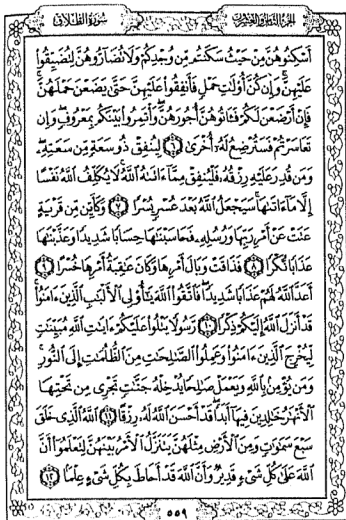 سُورَةُ الطَّلَاقِ الجُزْءُ الثَّامِنُ وَالعِشْرُونَ
أَسْكِنُوهُنَّ مِنْ حَيْثُ سَكَنتُم مِّن وُجْدِكُمْ وَلَا تُضَآرُّوهُنَّ لِتُضَيِّقُوا۟
عَلَيْهِنَّ ۚ وَإِن كُنَّ أُو۟لَٰتِ حَمْلٍ فَأَنفِقُوا۟ عَلَيْهِنَّ حَتَّىٰ يَضَعْنَ حَمْلَهُنَّ ۚ
فَإِنْ أَرْضَعْنَ لَكُمْ فَـَٔاتُوهُنَّ أُجُورَهُنَّ ۖ وَأْتَمِرُوا۟ بَيْنَكُم بِمَعْرُوفٍ ۖ وَإِن
تَعَاسَرْتُمْ فَسَتُرْضِعُ لَهُۥٓ أُخْرَىٰ ٦ لِيُنفِقْ ذُو سَعَةٍ مِّن سَعَتِهِۦ ۖ
وَمَن قُدِرَ عَلَيْهِ رِزْقُهُۥ فَلْيُنفِقْ مِمَّآ ءَاتَىٰهُ ٱللَّهُ ۚ لَا يُكَلِّفُ ٱللَّهُ نَفْسًا
إِلَّا مَآ ءَاتَىٰهَا ۚ سَيَجْعَلُ ٱللَّهُ بَعْدَ عُسْرٍ يُسْرًا ٧ وَكَأَيِّن مِّن قَرْيَةٍ
عَتَتْ عَنْ أَمْرِ رَبِّهَا وَرُسُلِهِۦ فَحَاسَبْنَٰهَا حِسَابًا شَدِيدًا وَعَذَّبْنَٰهَا
عَذَابًا نُّكْرًا ٨ فَذَاقَتْ وَبَالَ أَمْرِهَا وَكَانَ عَٰقِبَةُ أَمْرِهَا خُسْرًا ٩
أَعَدَّ ٱللَّهُ لَهُمْ عَذَابًا شَدِيدًا ۖ فَٱتَّقُوا۟ ٱللَّهَ يَٰٓأُو۟لِى ٱلْأَلْبَٰبِ ٱلَّذِينَ ءَامَنُوا۟ ۚ
قَدْ أَنزَلَ ٱللَّهُ إِلَيْكُمْ ذِكْرًا ١٠ رَّسُولًا يَتْلُوا۟ عَلَيْكُمْ ءَايَٰتِ ٱللَّهِ مُبَيِّنَٰتٍ
لِّيُخْرِجَ ٱلَّذِينَ ءَامَنُوا۟ وَعَمِلُوا۟ ٱلصَّٰلِحَٰتِ مِنَ ٱلظُّلُمَٰتِ إِلَى ٱلنُّورِ ۚ
وَمَن يُؤْمِنۢ بِٱللَّهِ وَيَعْمَلْ صَٰلِحًا يُدْخِلْهُ جَنَّٰتٍ تَجْرِى مِن تَحْتِهَا
ٱلْأَنْهَٰرُ خَٰلِدِينَ فِيهَآ أَبَدًا ۖ قَدْ أَحْسَنَ ٱللَّهُ لَهُۥ رِزْقًا ١١ ٱللَّهُ ٱلَّذِى خَلَقَ
سَبْعَ سَمَٰوَٰتٍ وَمِنَ ٱلْأَرْضِ مِثْلَهُنَّ يَتَنَزَّلُ ٱلْأَمْرُ بَيْنَهُنَّ لِتَعْلَمُوٓا۟ أَنَّ
ٱللَّهَ عَلَىٰ كُلِّ شَىْءٍ قَدِيرٌ وَأَنَّ ٱللَّهَ قَدْ أَحَاطَ بِكُلِّ شَىْءٍ عِلْمًۢا ١٢
٥٥٩